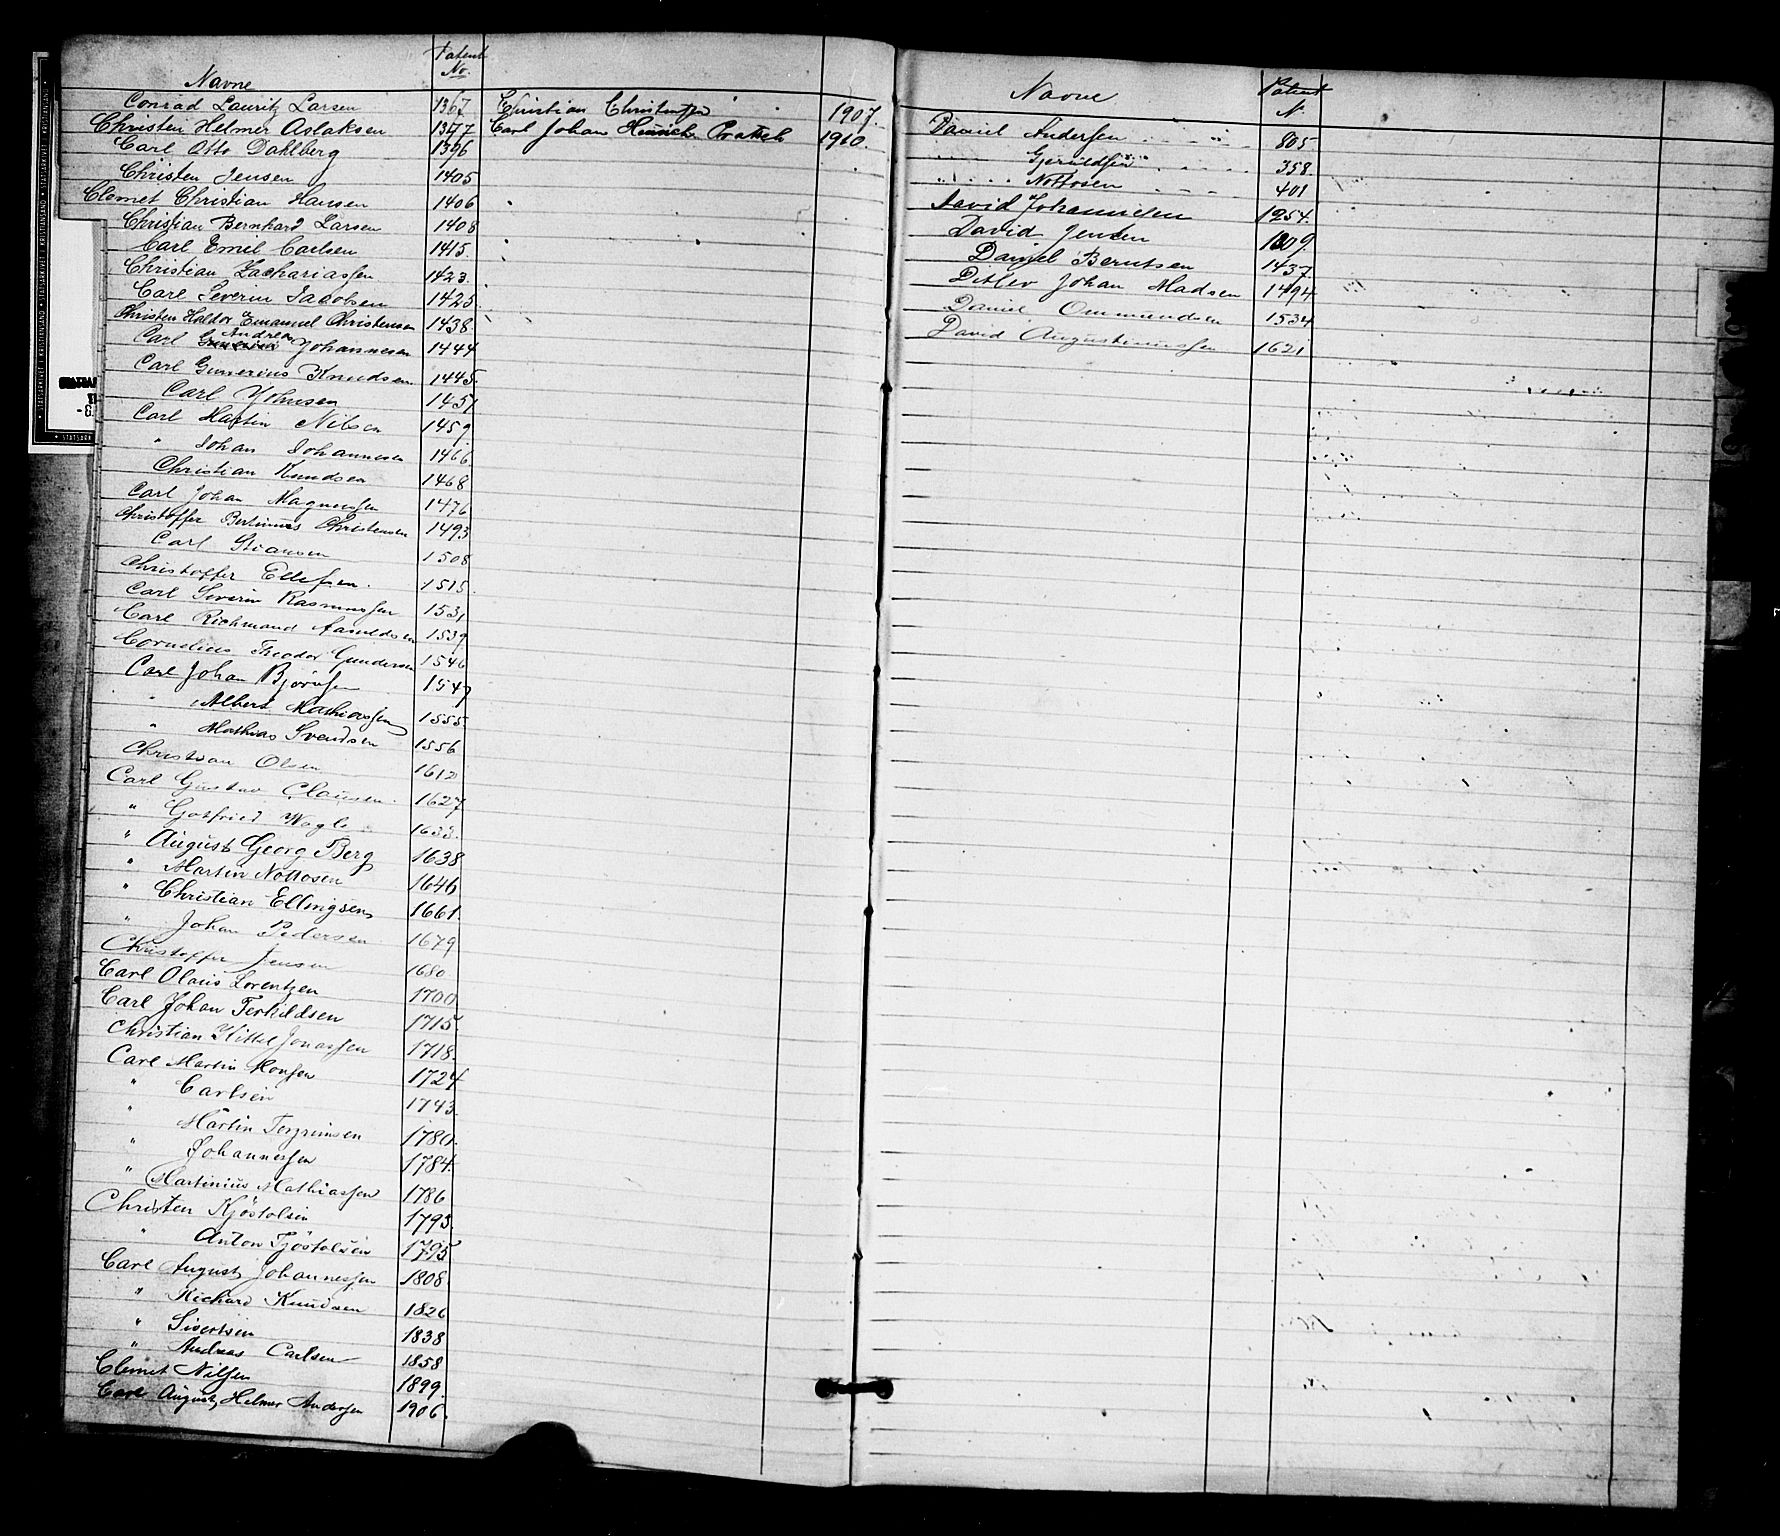 Navne Patent No.
Conrad Lauritz Larsen 1367
Christen Helmer Aslaksen 1377
Carl Otto Dahlberg 1396
Christen Jensen 1405
Clemet Christian Hansen 1406
Christian Bernhard Larsen 1408
Carl Emel Carlsen 1415.
Christian Zachariassen 1423.
Carl Severin Jacobsen 1425.
Christen Haldor Emanuel Christensen 1438.
Carl Andreas Johannesen 1444
Carl Gunerius Knudsen 1445.
Carl Johnsen 1457
Carl Martin Nilsen 1459
" Johan Johannesen 1466
Christian Knudsen 1468
Carl Johan Magnussen 1476
Christoffer Bertinius Christensen 1493
Carl Stiansen 1508
Christoffer Ellefsen. 1515.
Carl Severin Rasmussen 1531
Carl Richmand Aanuldsen 1539
Cornelius Theodor Gundersen 1546
Carl Johan Bjørnsen 1547
" Albert Mathiassen 1555.
" Mathias Svendsen 1556
Christian Olsen 1612
Carl Gustav Clausen. 1627
" Gotfried Wagle 1633.
" August Georg Berg 1638
" Martin Nottosen 1646
" Christian Ellingsen 1661.
" Johan Pedersen 1679
Christoffer Jensen 1680
Carl Olaus Lorentzen 1700
Carl Johan Terkildsen 1715.
Christian Kittel Jonassen 1718.
Carl Martin Monsen 1724
" Carlsen 1743.
" Martin Tergrimsen 1780.
" Johannessen 1784.
" Martinius Mathiassen 1786
Christen Kjøstolsen 1793.
" Anton Tjøstolsen 1795
Carl August Johannessen 1808.
" Richard Knudsen 1826
" Sivertsen 1838
" Andreas Carlsen 1858
Clemet Nilsen 1899.
Carl August Helmer Andersen 1906.
Christian Christensen 1907.
Carl Johan Hinrich 1960.
Navne Patent N.
Daniel Andersen 805
" Gjeruldsen 358.
" Nottosen 401
David Johannesen 1254.
David Jensen 1209.
Daniel Berntsen 1437
Ditlev Johan Madsen 1494
Daniel Ommundsen 1534
David Augustinussen 1621